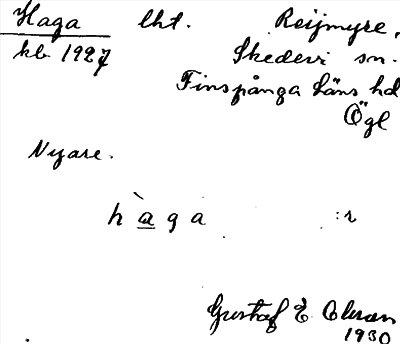 Haga lht. Reijmyre,
kb. 1927 Skedevi sn.
Finspånga läns hd
Ögl
Nyare.
hàga :r
Gustaf E.
1930